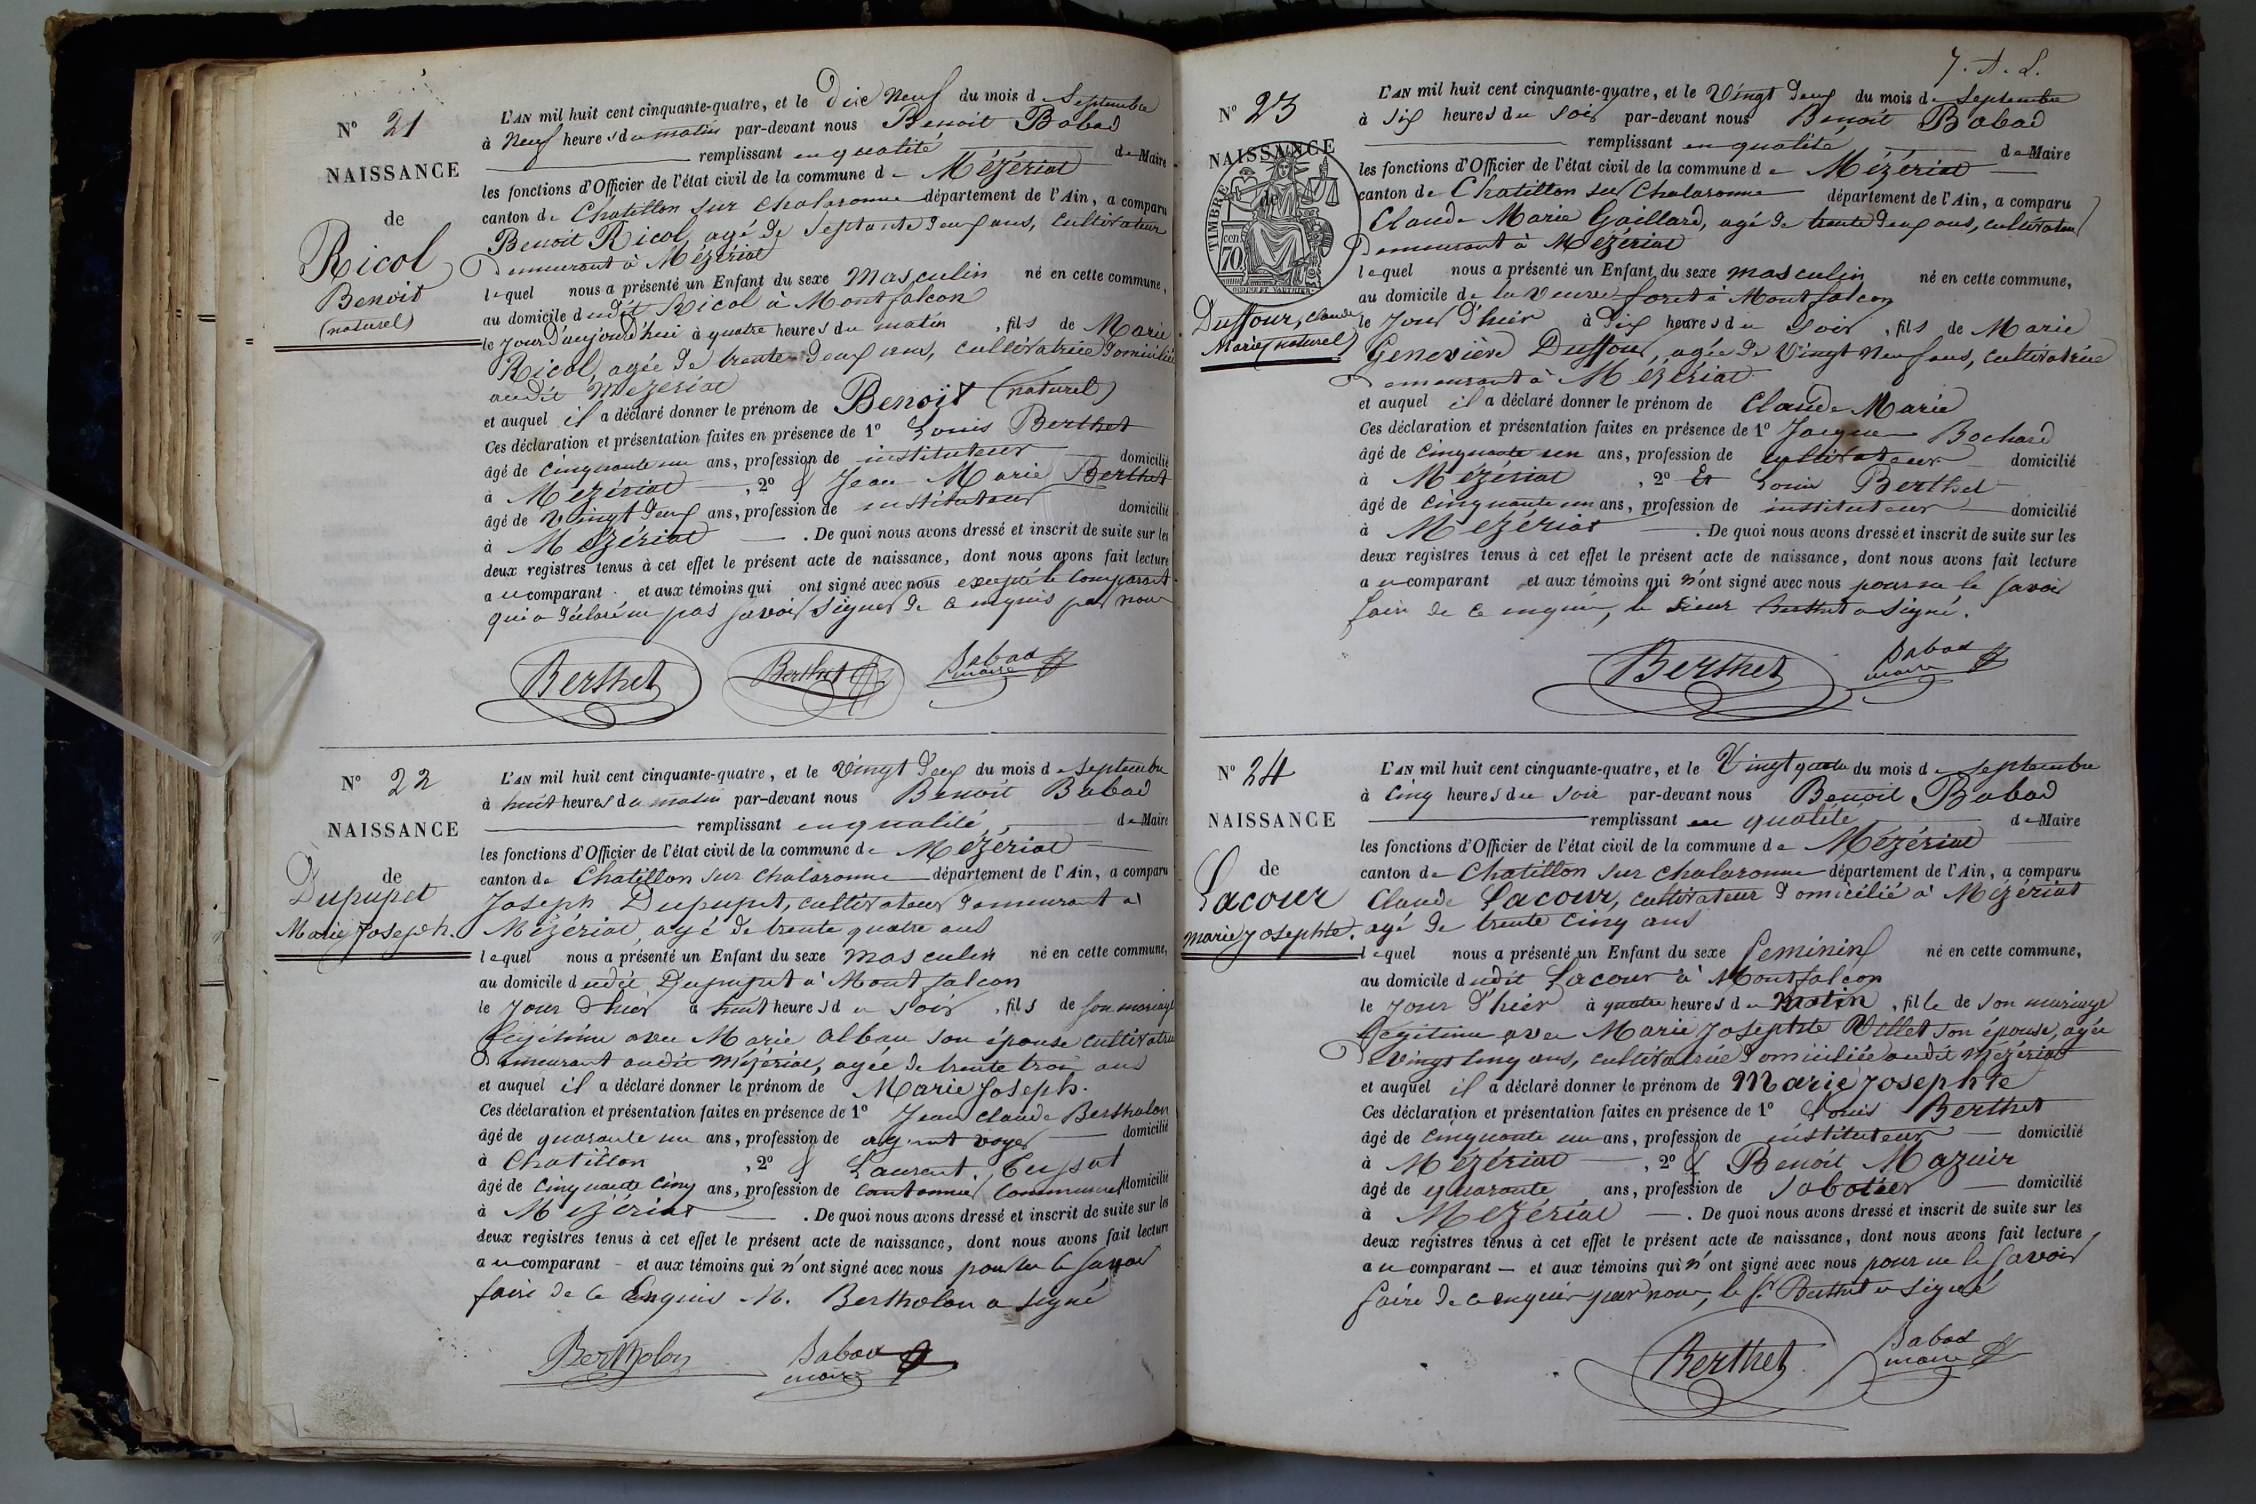 N° 21
NAISSANCE
de
Ricol
Benoit
(naturel)
L'AN mil huit cent cinquante-quatre, et le dix neuf du mois de Septembre
à Neuf heures du matin par-devant nous Benoit Babad
remplissant en qualité de Maire
les fonctions d'Officier de l'état civil de la commune de Mézériat
canton de Chatillon sur Chalaronne département de l'Ain, a comparu
Benoit Ricol, agé de septante deux ans, cultivateur
Demeurant à Mézériat
lequel nous a présenté un Enfant du sexe masculin né en cette commune,
au domicile dudit Ricol à Montfalcon
le jour d'aujourd'hui à quatre heures du matin , fils de Marie
Ricol, agée de trente deux ans, cultivatrice domiciliée
audit Mezeriat
et auquel il a déclaré donner le prénom de Benoit (naturel)
Ces déclaration et présentation faites en présence de 1° Louis Berthet
âgé de cinquante un ans, profession de instituteur domicilié
à Mézériat , 2° & Jean Marie Berthet
âgé de vingt deux ans, profession de instituteur domicilié
à Mézériat . De quoi nous avons dressé et inscrit de suite sur les
deux registres tenus à cet effet le présent acte de naissance, dont nous avons fait lecture
au comparant et aux témoins qui ont signé avec nous excepté le comparant
qui a déclaré ne pas savoir signer de ce enquis par nous
Berthet Berthet Babad
maire
N° 22
NAISSANCE
de
Dupupet
Marie Joseph.
L'AN mil huit cent cinquante-quatre, et le vingt deux du mois de Septembre
à huit heures du matin par-devant nous Benoit Babad
remplissant en qualité de Maire
les fonctions d'Officier de l'état civil de la commune de Mézériat
canton de Chatillon sur Chalaronne département de l'Ain, a comparu
Joseph Dupupet, cultivateur demeurant à
Mézériat, agé de trente quatre ans
lequel nous a présenté un Enfant du sexe masculin né en cette commune,
au domicile dudit Dupupet à Montfalcon
le jour d'hier à huit heures du soir , fils de son mariage
légitime avec Marie Alban son épouse cultivatrice
Demeurant audit Mézériat, agée de trente trois ans
et auquel il a déclaré donner le prénom de Marie Joseph.
Ces déclaration et présentation faites en présence de 1° Jean Claude Bertholon
âgé de quarante un ans, profession de agent voyer domicilié
à Chatillon , 2° & Laurent
âgé de cinquante cinq ans, profession de cantonnier communal domicilié
à Mézériat . De quoi nous avons dressé et inscrit de suite sur les
deux registres tenus à cet effet le présent acte de naissance, dont nous avons fait lecture
au comparant et aux témoins qui n'ont signé avec nous pour ne le savoir
faire de ce Enquis M. Bertholon a signé
Bertholon Babad
maire
7. A. L.
N° 23
NAISSANCE
de
TIMBRE
cen 70
Duffour, Claude
Marie (naturel)
L'AN mil huit cent cinquante-quatre, et le vingt deux du mois de Septembre
à six heures du soir par-devant nous Benoit Babad
remplissant en qualité de Maire
les fonctions d'Officier de l'état civil de la commune de Mézériat
canton de Chatillon sur Chalaronne département de l'Ain, a comparu
Claude Marie Gaillard, agé de trente deux ans, cultivateur
Demeurant à Mézériat
lequel nous a présenté un Enfant du sexe masculin né en cette commune,
au domicile de la veuve foret à Montfalcon
le jour d'hier à dix heures du soir , fils de Marie
Geneviève Duffour, agée de vingt neuf ans, cultivatrice
Demeurant à Mézériat
et auquel il a déclaré donner le prénom de Claude Marie
Ces déclaration et présentation faites en présence de 1° Jacques Bochard
âgé de cinquante un ans, profession de cultivateur domicilié
à Mézériat , 2° Et Louis Berthet
âgé de cinquante un ans, profession de instituteur domicilié
à Mézériat . De quoi nous avons dressé et inscrit de suite sur les
deux registres tenus à cet effet le présent acte de naissance, dont nous avons fait lecture
au comparant et aux témoins qui n'ont signé avec nous pour ne le savoir
faire de ce enquis, le sieur Berthet a signé.
Berthet Babad
maire
N° 24
NAISSANCE
de
Lacour
Marie Josephte.
L'AN mil huit cent cinquante-quatre, et le Vingt quatre du mois de Septembre
à cinq heures du soir par-devant nous Benoit Babad
remplissant en qualité de Maire
les fonctions d'Officier de l'état civil de la commune de Mézériat
canton de Chatillon sur Chalaronne département de l'Ain, a comparu
Claude Lacour, cultivateur domicilié à Mézériat
agé de trente cinq ans
lequel nous a présenté un Enfant du sexe feminin né en cette commune,
au domicile dudit Lacour à Montfalcon
le jour d'hier à quatre heures du matin , fille de son mariage
légitime avec Marie Josephte Villet son épouse, agée
De vingt cinq ans, cultivatrice domiciliée audit Mézériat
et auquel il a déclaré donner le prénom de Marie Josephte
Ces déclaration et présentation faites en présence de 1° Louis Berthet
âgé de cinquante un ans, profession de instituteur domicilié
à Mézériat , 2° & Benoit Mazuir
âgé de quarante ans, profession de sabotier domicilié
à Mézériat . De quoi nous avons dressé et inscrit de suite sur les
deux registres tenus à cet effet le présent acte de naissance, dont nous avons fait lecture
au comparant et aux témoins qui n'ont signé avec nous pour ne le savoir
faire de ce enquis par nous, le Sr Berthet a signé
Berthet Babad
maire